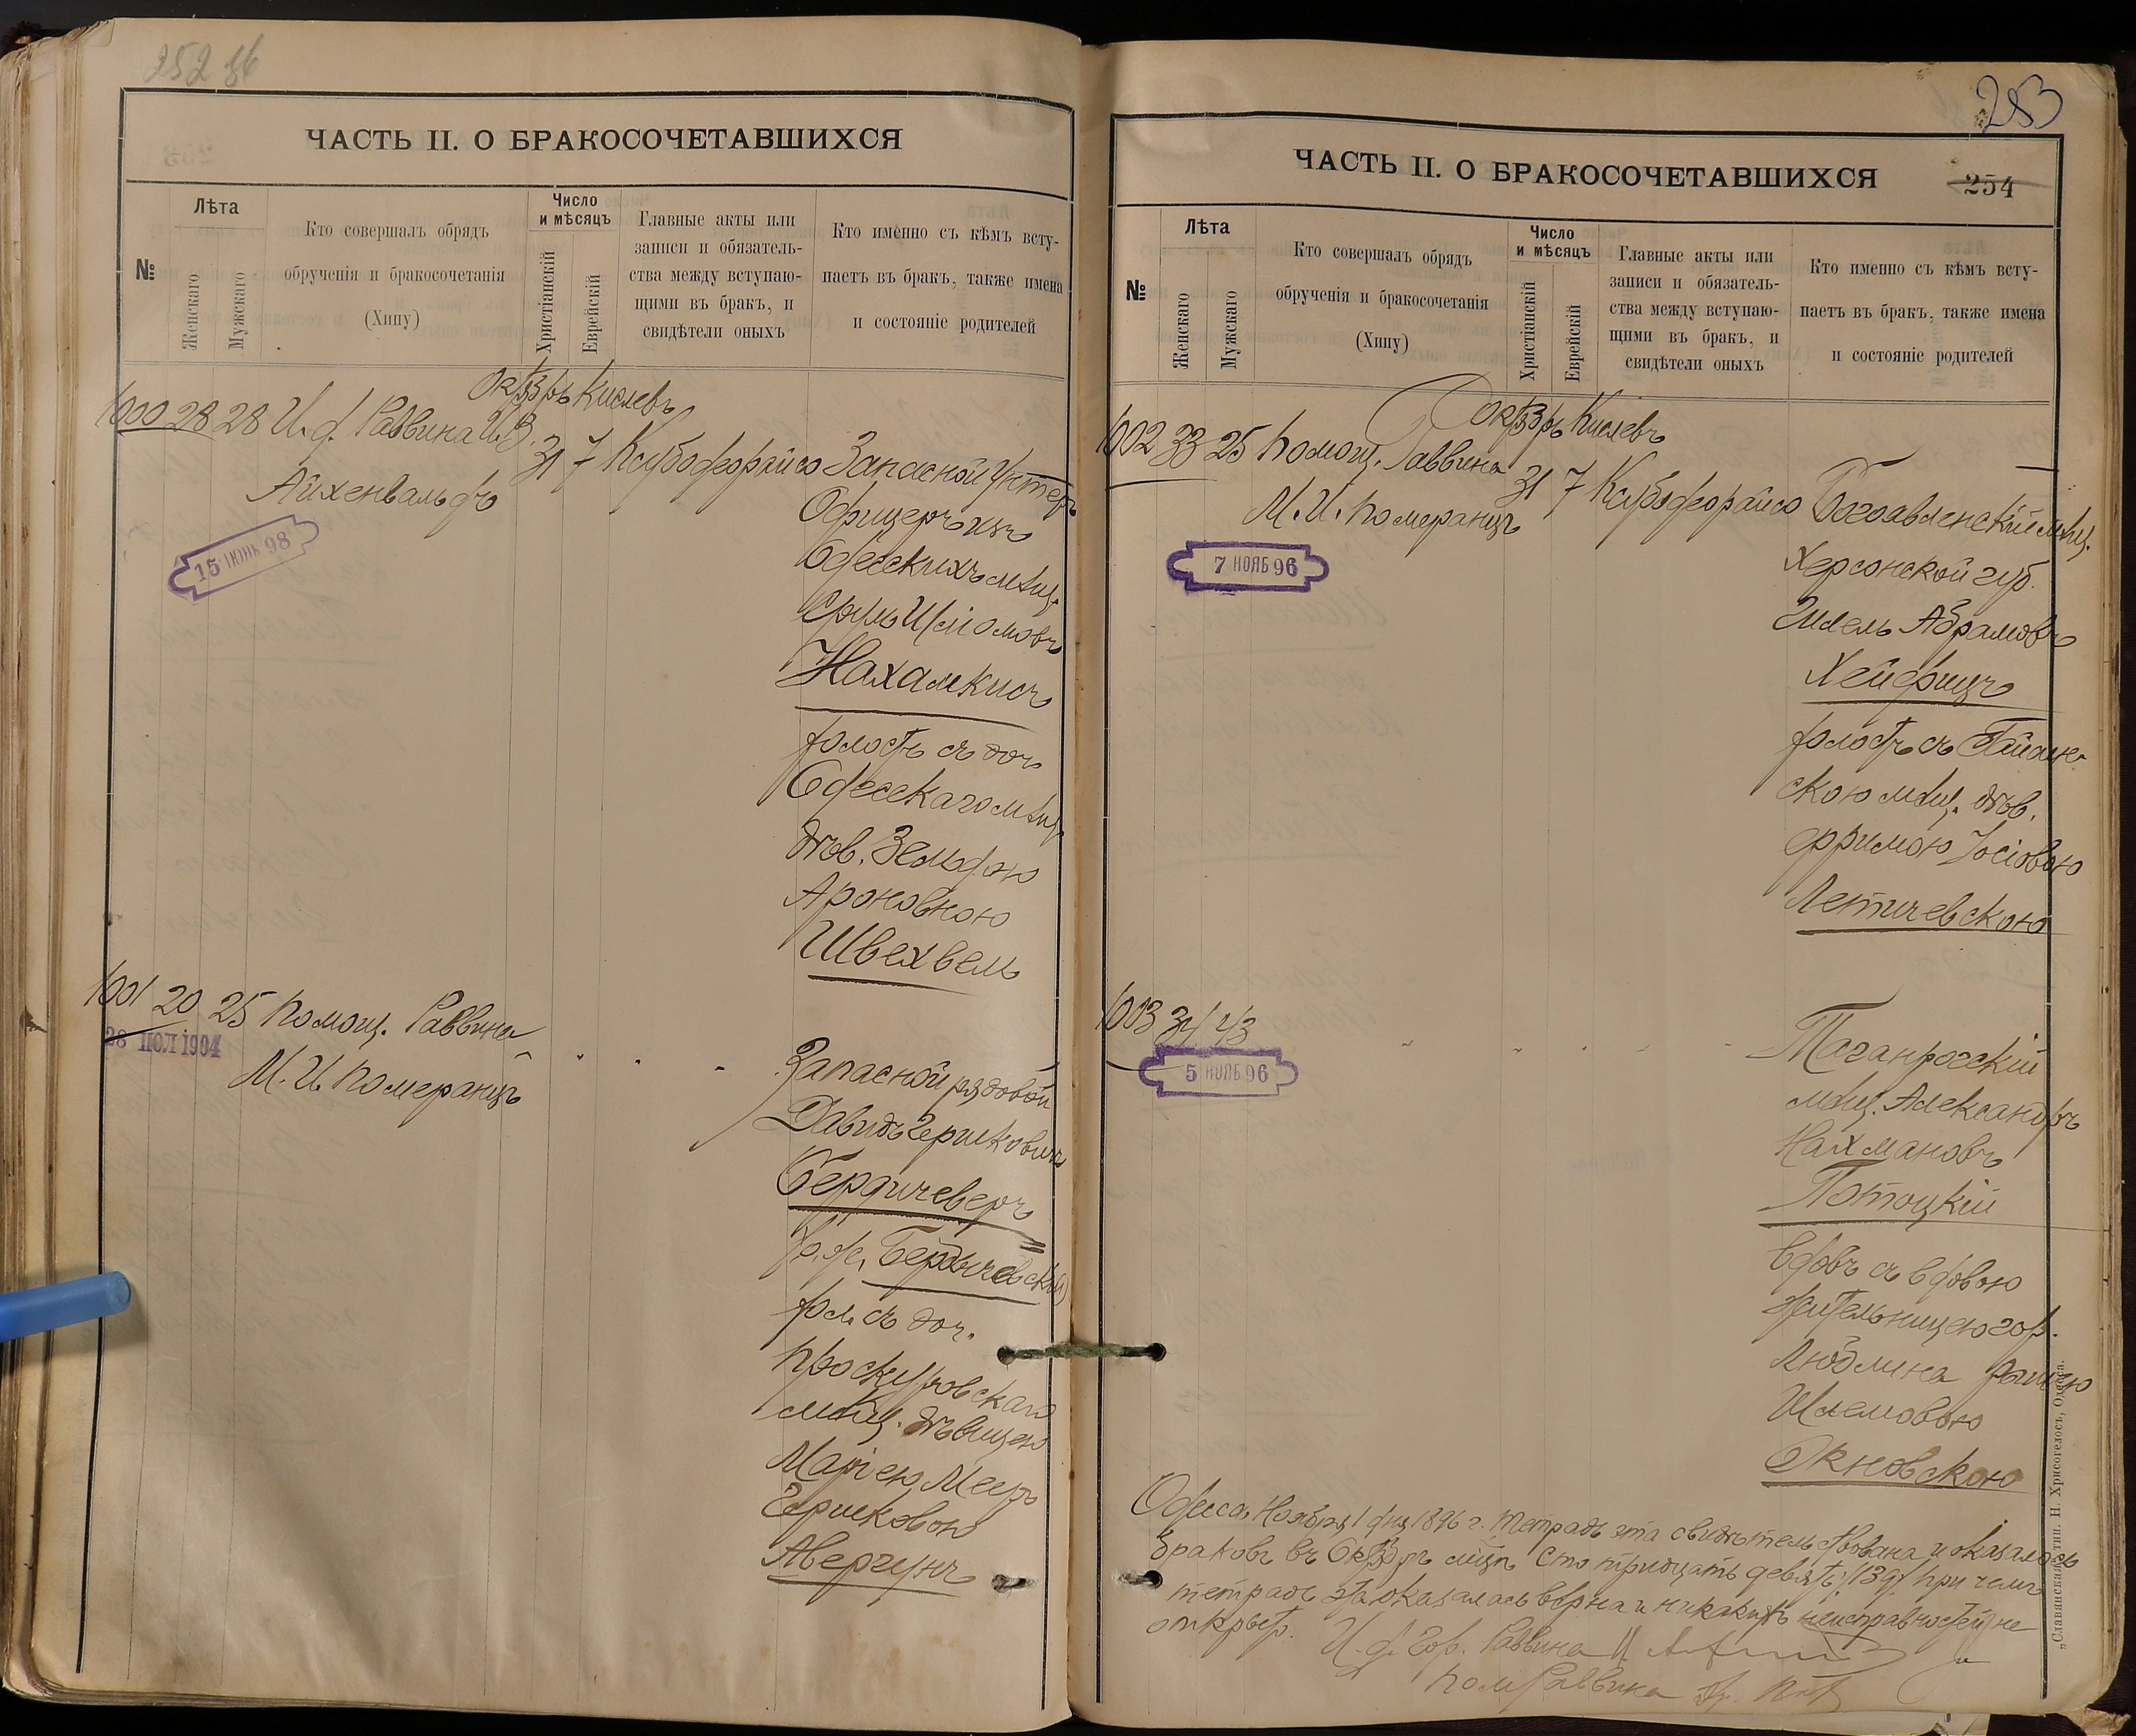 252 об
ЧАСТЬ II. О БРАКОСОЧЕТАВШИХСЯ
№
Лѣта
Женскаго
Мужскаго
Кто совершалъ обрядъ
обрученія и бракосочетанія
(Хипу)
Число
и мѣсяцъ
Христіанскій
Еврейскій
Главные акты или
записи и обязатель-
ства между вступаю-
щими въ бракъ, и
свидѣтели оныхъ
Кто именно съ кѣмъ всту-
паетъ въ бракъ, также имена
и состояніе родителей
Октябрь Кислевъ
1000 28 28 И. д. Раввина И. З. 31 7 Ксубо Запасной Унтеръ
Айхенвальдъ
Офицеръ изъ
15 ІЮНЬ 98
Одесскихъ мѣщ.
Сруль Шліомовъ
Нахамкисъ
холостъ съ доч
Одесскаго мѣщ.
дѣв. Зельдою
Ароновною
Швехвель
1001 20 25 Помощ. Раввина
28 1904
М. И. Померанцъ
Запасной рядовой
Давидъ Гершковичъ
Бердичеверъ
Бердичевскій
хол. съ доч.
Проскуровскаго
мѣщ. дѣвицею
Маріею Меер
Гершковою
Авергунъ
283
ЧАСТЬ II. О БРАКОСОЧЕТАВШИХСЯ
254
№
Лѣта
Женскаго
Мужскаго
Кто совершалъ обрядъ
обрученія и бракосочетанія
(Хипу)
Число
и мѣсяцъ
Христіанскій
Еврейскій
Главные акты или
записи и обязатель-
ства между вступаю-
щими въ бракъ, и
свидѣтели оныхъ
Кто именно съ кѣмъ всту-
паетъ въ бракъ, также имена
и состояніе родителей
Октябрь Кислевъ
1002 33 25 Помощ. Раввина 31 7 Ксубо Богоявленскій мѣщ.
М. И. Померанцъ
Херсонской губ.
7 НОЯБ 96
Гилель Абрамовъ
Хейфицъ
холостъ съ
скою мѣщ. дѣв.
Фримою Іосіовою
Летичевскою
1003 34 43
Таганрогскій
5 НОЯБ 96
мѣщ. Александръ
Нахмановъ
Потоцкій
вдовъ съ вдовою
жительницею гор.
Люблина
Шлемовою
Окновскою
Одесса, Ноября 1 дня 1896 г. Тетрадь эта свидѣтельствована и оказалось
браковъ въ Октябрѣ мѣцѣ Сто тридцать девять /139/ при чемъ
тетрадь эта оказалась вѣрна и никакихъ неисправностей не
открыто. И. д. Гор. Раввина
Пом Раввина
„Славянская“ тип. Н. Хрисогелосъ, Одесса.